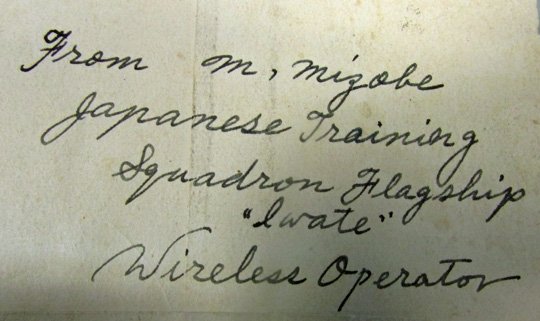 From M. Mizobe
Japanese Training
Squadron Flagship
"Iwate"
Wireless Operator